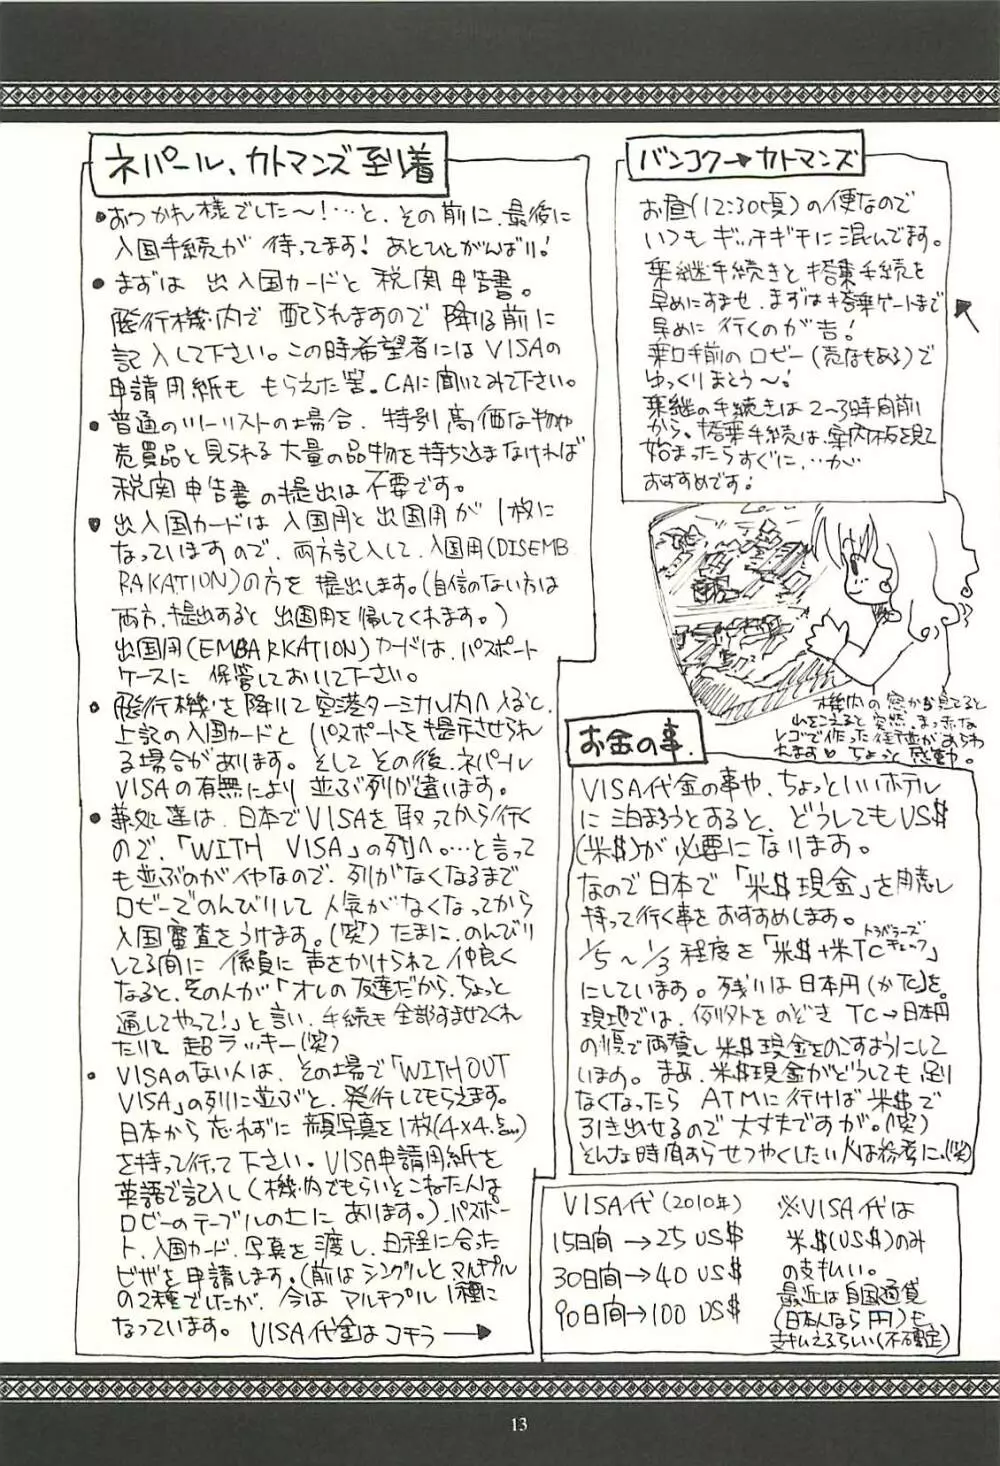 バンコク→カトマンズ
お昼(12:30頃)の便なので
いつもギッチギチに混んでます。
乗継手続きと搭乗手続を
早めにすませ、まずは搭乗ゲートまで
早めに行くのが吉!
乗口手前のロビー(売店もある)で
ゆっくりまとう〜!
乗継の手続きは2〜3時間前
から。搭乗手続は、案内板を見て
始まったらすぐに、・・が
おすすめです!
機内の窓から見てると
山をこえると突然、まっ赤な
レゴで作った街並があらわ
れます♡ ちょっと感動。
ネパール、カトマンズ到着
●おつかれ様でした〜!…と、その前に、最後に
入国手続が 待ってます! あとひとがんばり!
●まずは 出入国カードと 税関申告書。
飛行機内で 配られますので 降りる前に
記入して下さい。この時希望者にはVISAの
申請用紙も もらえた筈。CAに聞いてみて下さい。
●普通のツーリストの場合、特別高価な物や
売買品と見られる大量の品物を持ち込まなければ
税関申告書の提出は不要です。
●出入国カードは 入国用と出国用が 1枚に
なっていますので、両方記入して、入国用(DISEMB
RAKATION)の方を 提出します。(自信のない方は
両方、提出すると 出国用を帰してくれます。)
出国用(EMBARKATION)カードは、パスポート
ケースに 保管しておいて下さい。
●飛行機を降りて空港ターミナル内へ入ると、
上記の入国カードと パスポートを提示させられ
る場合があります。そして その後、ネパール
VISAの有無により 並ぶ列が違います。
●兼処達は、日本でVISAを 取ってから行く
ので、「WITH VISA」の列へ。…と言って
も並ぶのがイヤなので、列がなくなるまで
ロビーでのんびりして人気がなくなってから
入国審査をうけます。(笑) たまに、のんびり
してる間に 係員に声をかけられて、仲良く
なると、その人が「オレの友達だから、ちょっと
通してやって!」と言い、手続も 全部すませてくれ
たりして 超ラッキー(笑)
●VISAのない人は、その場で「WITHOUT
VISA」の列に並ぶと、発行してもらえます。
日本から 忘れずに 顔写真を1枚(4×4.5㎝)
を持って行って下さい。VISA申請用紙を
英語で記入し(機内でもらいそこねた人は
ロビーのテーブルの上にあります。)、パスポー
ト、入国カード、写真を渡し、日程に合った
ビザを申請します。(前はシングルとマルチプル
の2種でしたが、今は マルチプル1種に
なっています。 VISA代金はコチラ→
お金の事。
VISA代金の事や、ちょっといいホテル
に泊まろうとすると、どうしてもUS$
(米$)が必要になります。
なので日本で「米$現金」を用意し
持って行く事をおすすめします。
1/5〜1/3程度を「米$+米TC」
トラベラーズチェック
にしています。残りは日本円(かたこと)を。
現地では、例外をのぞき TC→日本円
の順で両替し 米$現金をのこすようにして
います。まあ、米$現金がどうしても足り
なくなったら ATMに行けば米$で
引き出せるので 大丈夫ですが。(笑)
そんな時間あらせつやくしたい人は参考に。(笑)
VISA代(2010年)
15日間→25US$
30日間→40US$
90日間→100US$
※VISA代は
米$(US$)のみ
の支払い。
最近は自国通貨
(日本人なら円)も
支払えるらしい(不確定)
13